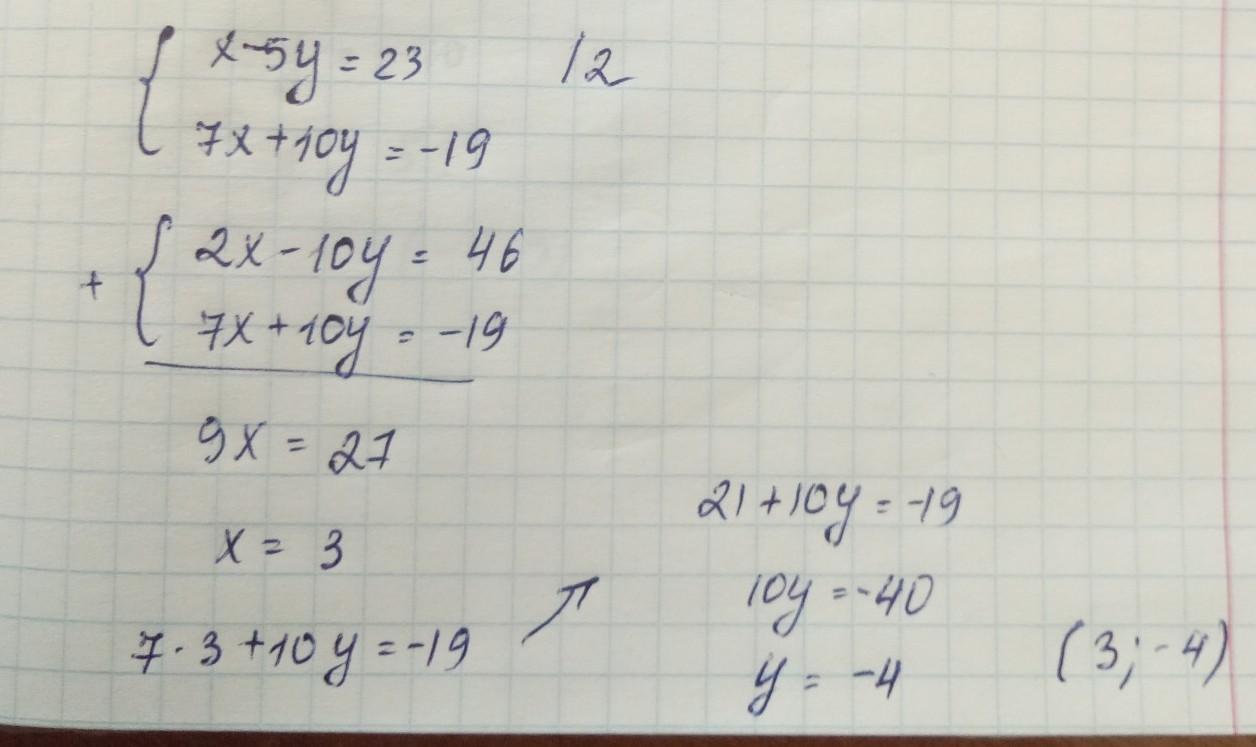 x-5y=23 /2
7x+10y=-19
+
2x-10y= 46
7x+10y=-19
9x=27
x=3
7·3+10y=-19
21+10y=-19
10y=-40
y=-4
(3;-4)